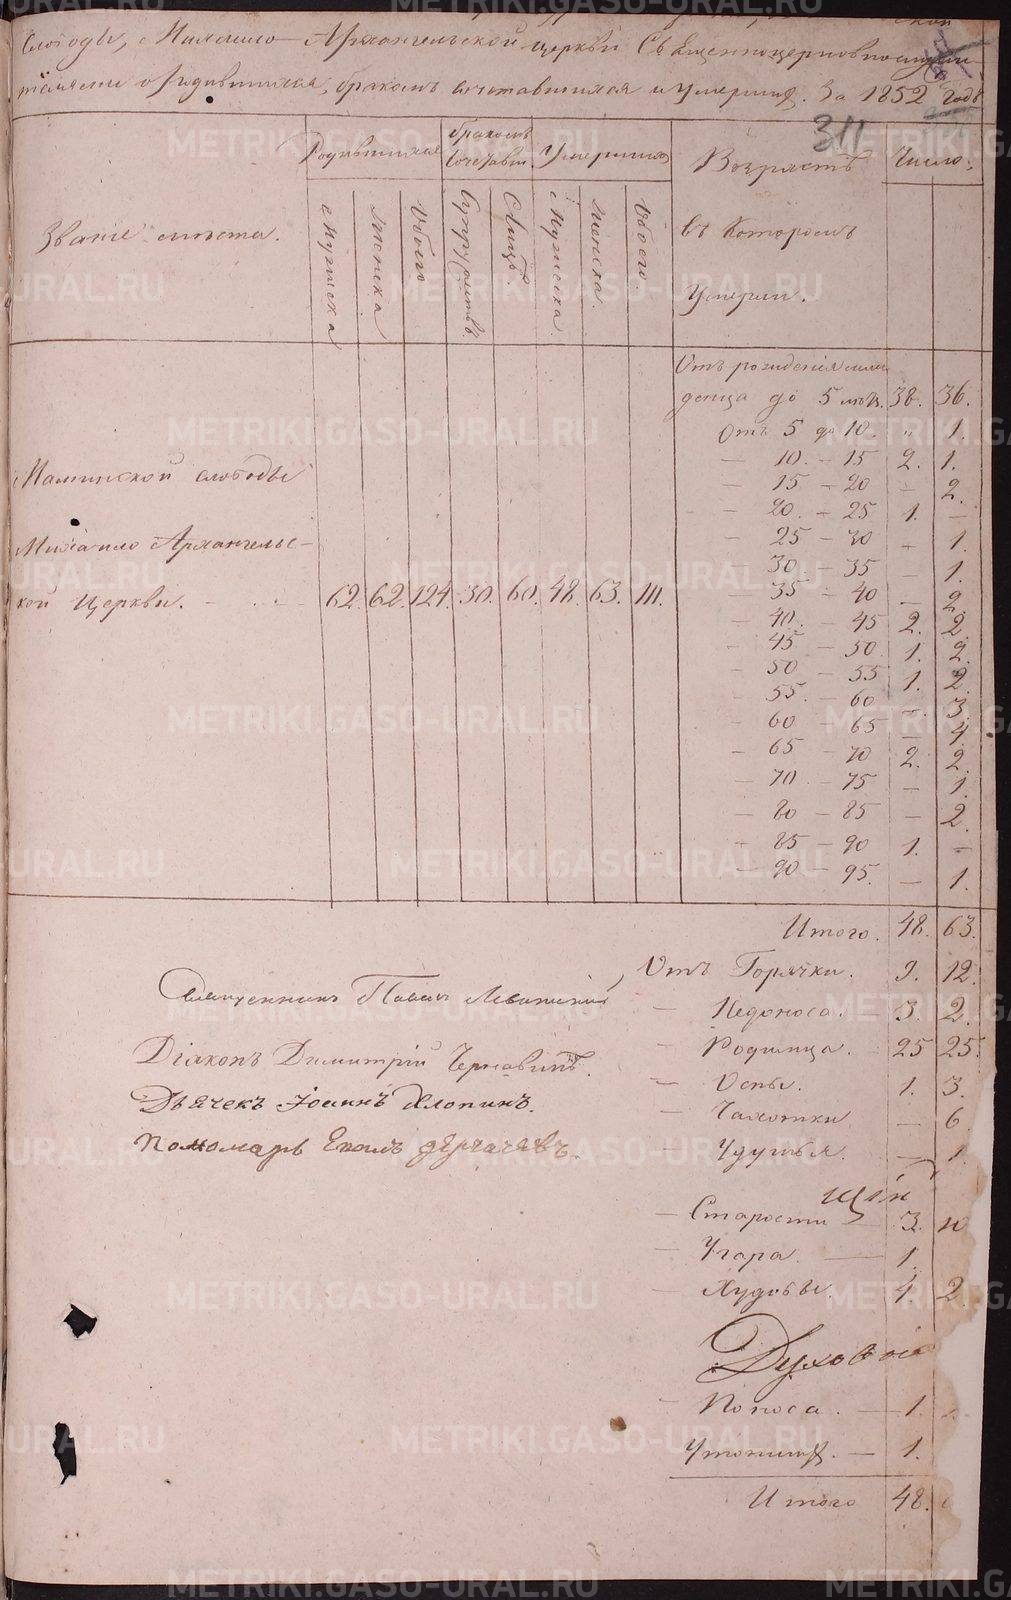 слободы, Михаило-Архангельской церкви Священноцерковнослужи-
телями о родившихся, бракомъ сочетавшихся и умершихъ. За 1852 годъ
311
Званіе мѣста.
Родившихся
бракомъ сочетавш.
Умершихъ
Мужеска
Женска
Обоего
Супружествъ.
Лицъ.
Мужеска.
Женска.
Обоего
Возрастъ
въ которомъ
Умерли.
Число.
Отъ рожденія мла-
денца до 5 лѣтъ. 38. 36.
Отъ 5 до 10 " 1.
— 10. — 15 2. 1.
— 15 — 20 — 2.
— 20. — 25 1. —
— 25 — 30 — 1.
— 30 — 35 1.
35 — 40 — 2.
— 40. — 45 2. 2.
— 45 — 50 1. 2.
— 50 — 55 1. 2.
— 55. — 60 — 3.
— 60 — 65 — 4.
— 65 — 70 2. 2.
— 70. — 75 — 1.
— 80 — 85 — 2.
— 85 — 90 1. —
— 90 — 95. — 1.
Маминской слободы
Михаило Архангельс-
кой Церкви. 62. 62. 124. 30. 60. 48. 63. 111.
Итого. 48. 63.
Отъ Горячки. 9. 12.
— Недоноса. 3. 2.
— Родимца. 25 25.
— Оспы. 1. 3.
— Чахотки — 6.
— Удушья. — 1.
— Старости — 3. 10
— Угара. — 1.
— Худобы. 4. 2.
— Поноса. — 1.
Утонших. — 1.
Итого 48.
Священникъ Павелъ Левитскій
Діаконъ Димитрій Чернавинъ.
Дьячекъ Іоаннъ Хлопинъ.
Пономарь Ефимъ Дергачевъ.
METRIKI.GASO-URAL.RU